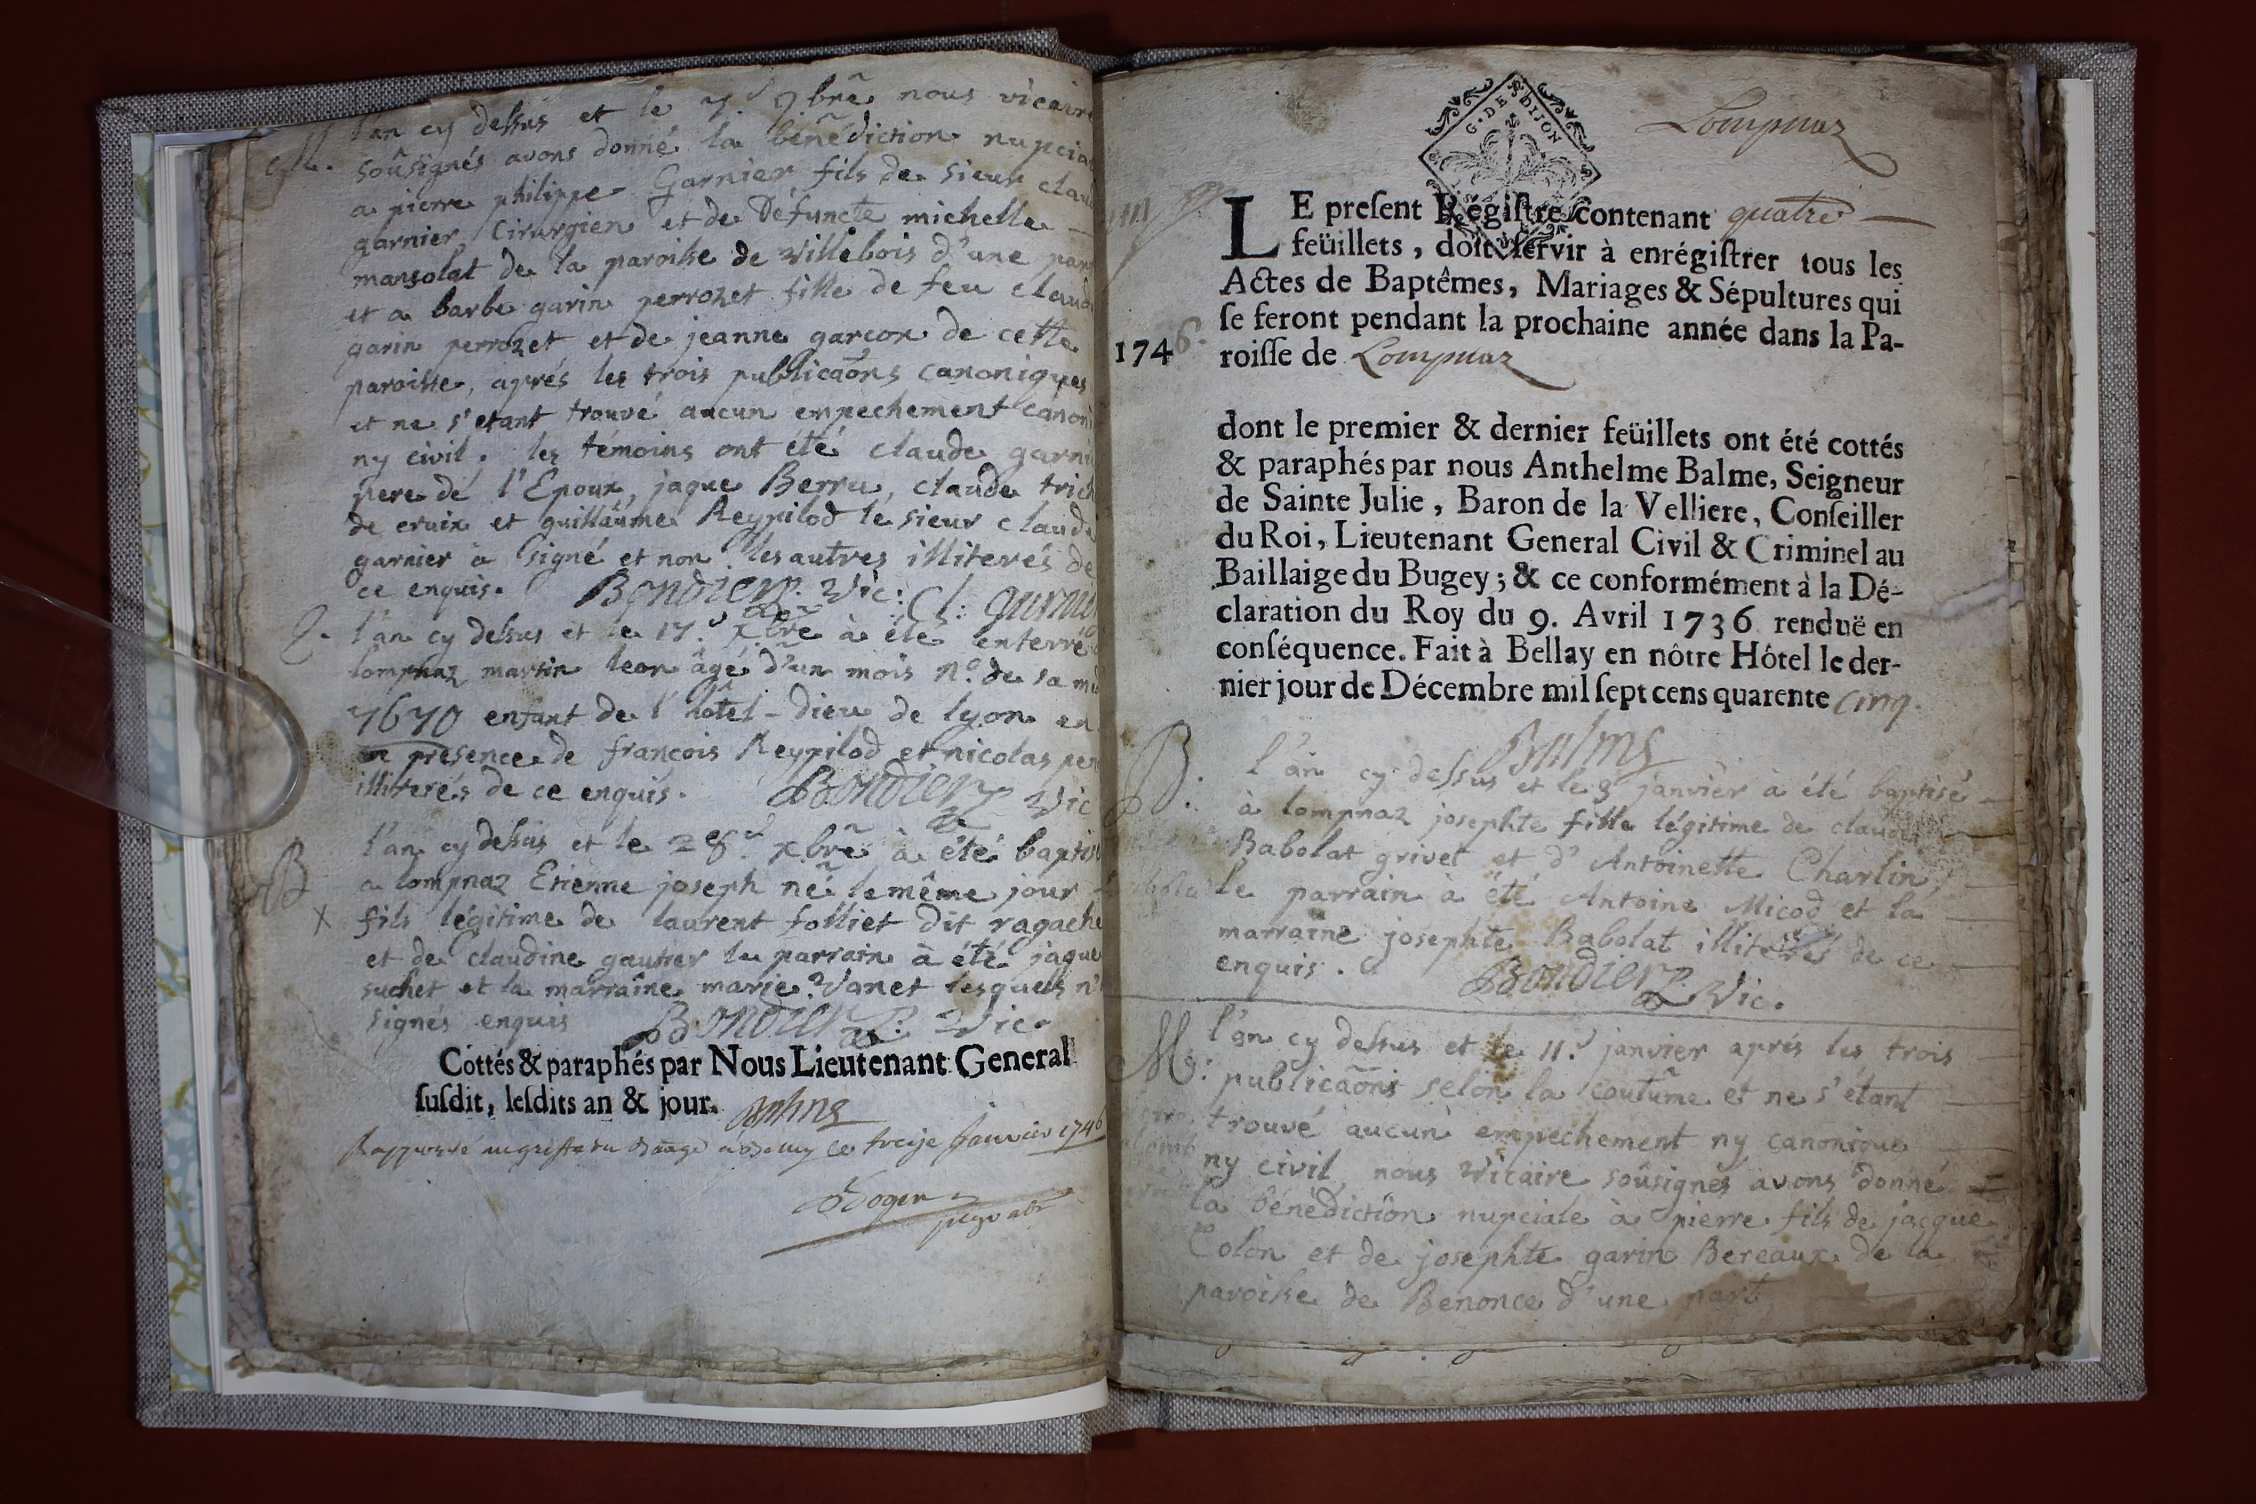 M. l'an cy dessus et le 7.e 9bre nous vicaire
soûsignés avons donné la bénédiction nupcia
a pierre philippe Garnier fils de sieur clau
garnier Cirurgien et de Défuncte michelle
mansolat de la paroisse de villebois d'une par
et a barbe garin perrozet fille de feu claud
garin perrozet et de jeanne garcon de cette
paroisse, aprés les trois publicaõns canoniques
et ne s'etant trouvé aucun empechement canoni
ny civil. les temoins ont été claude garni
pere de l'Epoux, jaque Berru, claude trich
de cruix et guillâume Reypilod le sieur claude
garnier à signé et non les autres illiterés de
ce enquis. Bondier p. vic: Cl: garnie
S. l'an cy dessus et le 17.e xbre à été enterré
lompnaz martin leon âgé d'un mois n.o de sa m
7670 enfant de l'hotel-dieu de lyon en
presence de francois Reypilod et nicolas per
illiterés de ce enquis. Bondier p. vic
B l'an cy dessus et le 28.e xbre à été baptis
a lompnaz Etienne joseph né le même jour
X fils légitime de laurent folliet dit ragache
et de Claudine gautier le parrain à été jaque
suchet et la marraîne marie vanet lesquels n'
signés enquis Bondier p. vic.
Cottés & paraphés par Nous Lieutenant General
susdit, lesdits an & jour. Balme
ce treize Janvier 1746
G. DE DIJON
Lompnaz
LE present Régistre contenant quatre
feüillets, doit servir à enrégistrer tous les
Actes de Baptêmes, Mariages & Sépultures qui
se feront pendant la prochaine année dans la Pa-
1746. roisse de Lompnaz
dont le premier & dernier feüillets ont été cottés
& paraphés par nous Anthelme Balme, Seigneur
de Sainte Julie, Baron de la Velliere, Conseiller
du Roi, Lieutenant General Civil & Criminel au
Baillaige du Bugey; & ce conformément à la Dé-
claration du Roy du 9. Avril 1736 renduë en
conséquence. Fait à Bellay en nôtre Hôtel le der-
nier jour de Décembre mil sept cens quarente cinq.
Balme
B. l'an cy dessus et le 9 janvier à été baptisé
à lompnaz josephte fille légitime de claude
Babolat grivet et d'Antoinette Charlin,
le parrain à été Antoine Micod et la
marraine josephte Babolat illiterés de ce
enquis. Bondier p. vic.
M: l'an cy dessus et le 11.e janvier aprés les trois
publicaõns selon la coutûme et ne s'étant
trouvé aucun empechement ny canonique
ny civil nous vicaire soûsignés avons donné
la bénédiction nupciale à pierre fils de jacque
Colon et de josephte garin Bereaux de la
paroisse de Benonce d'une part